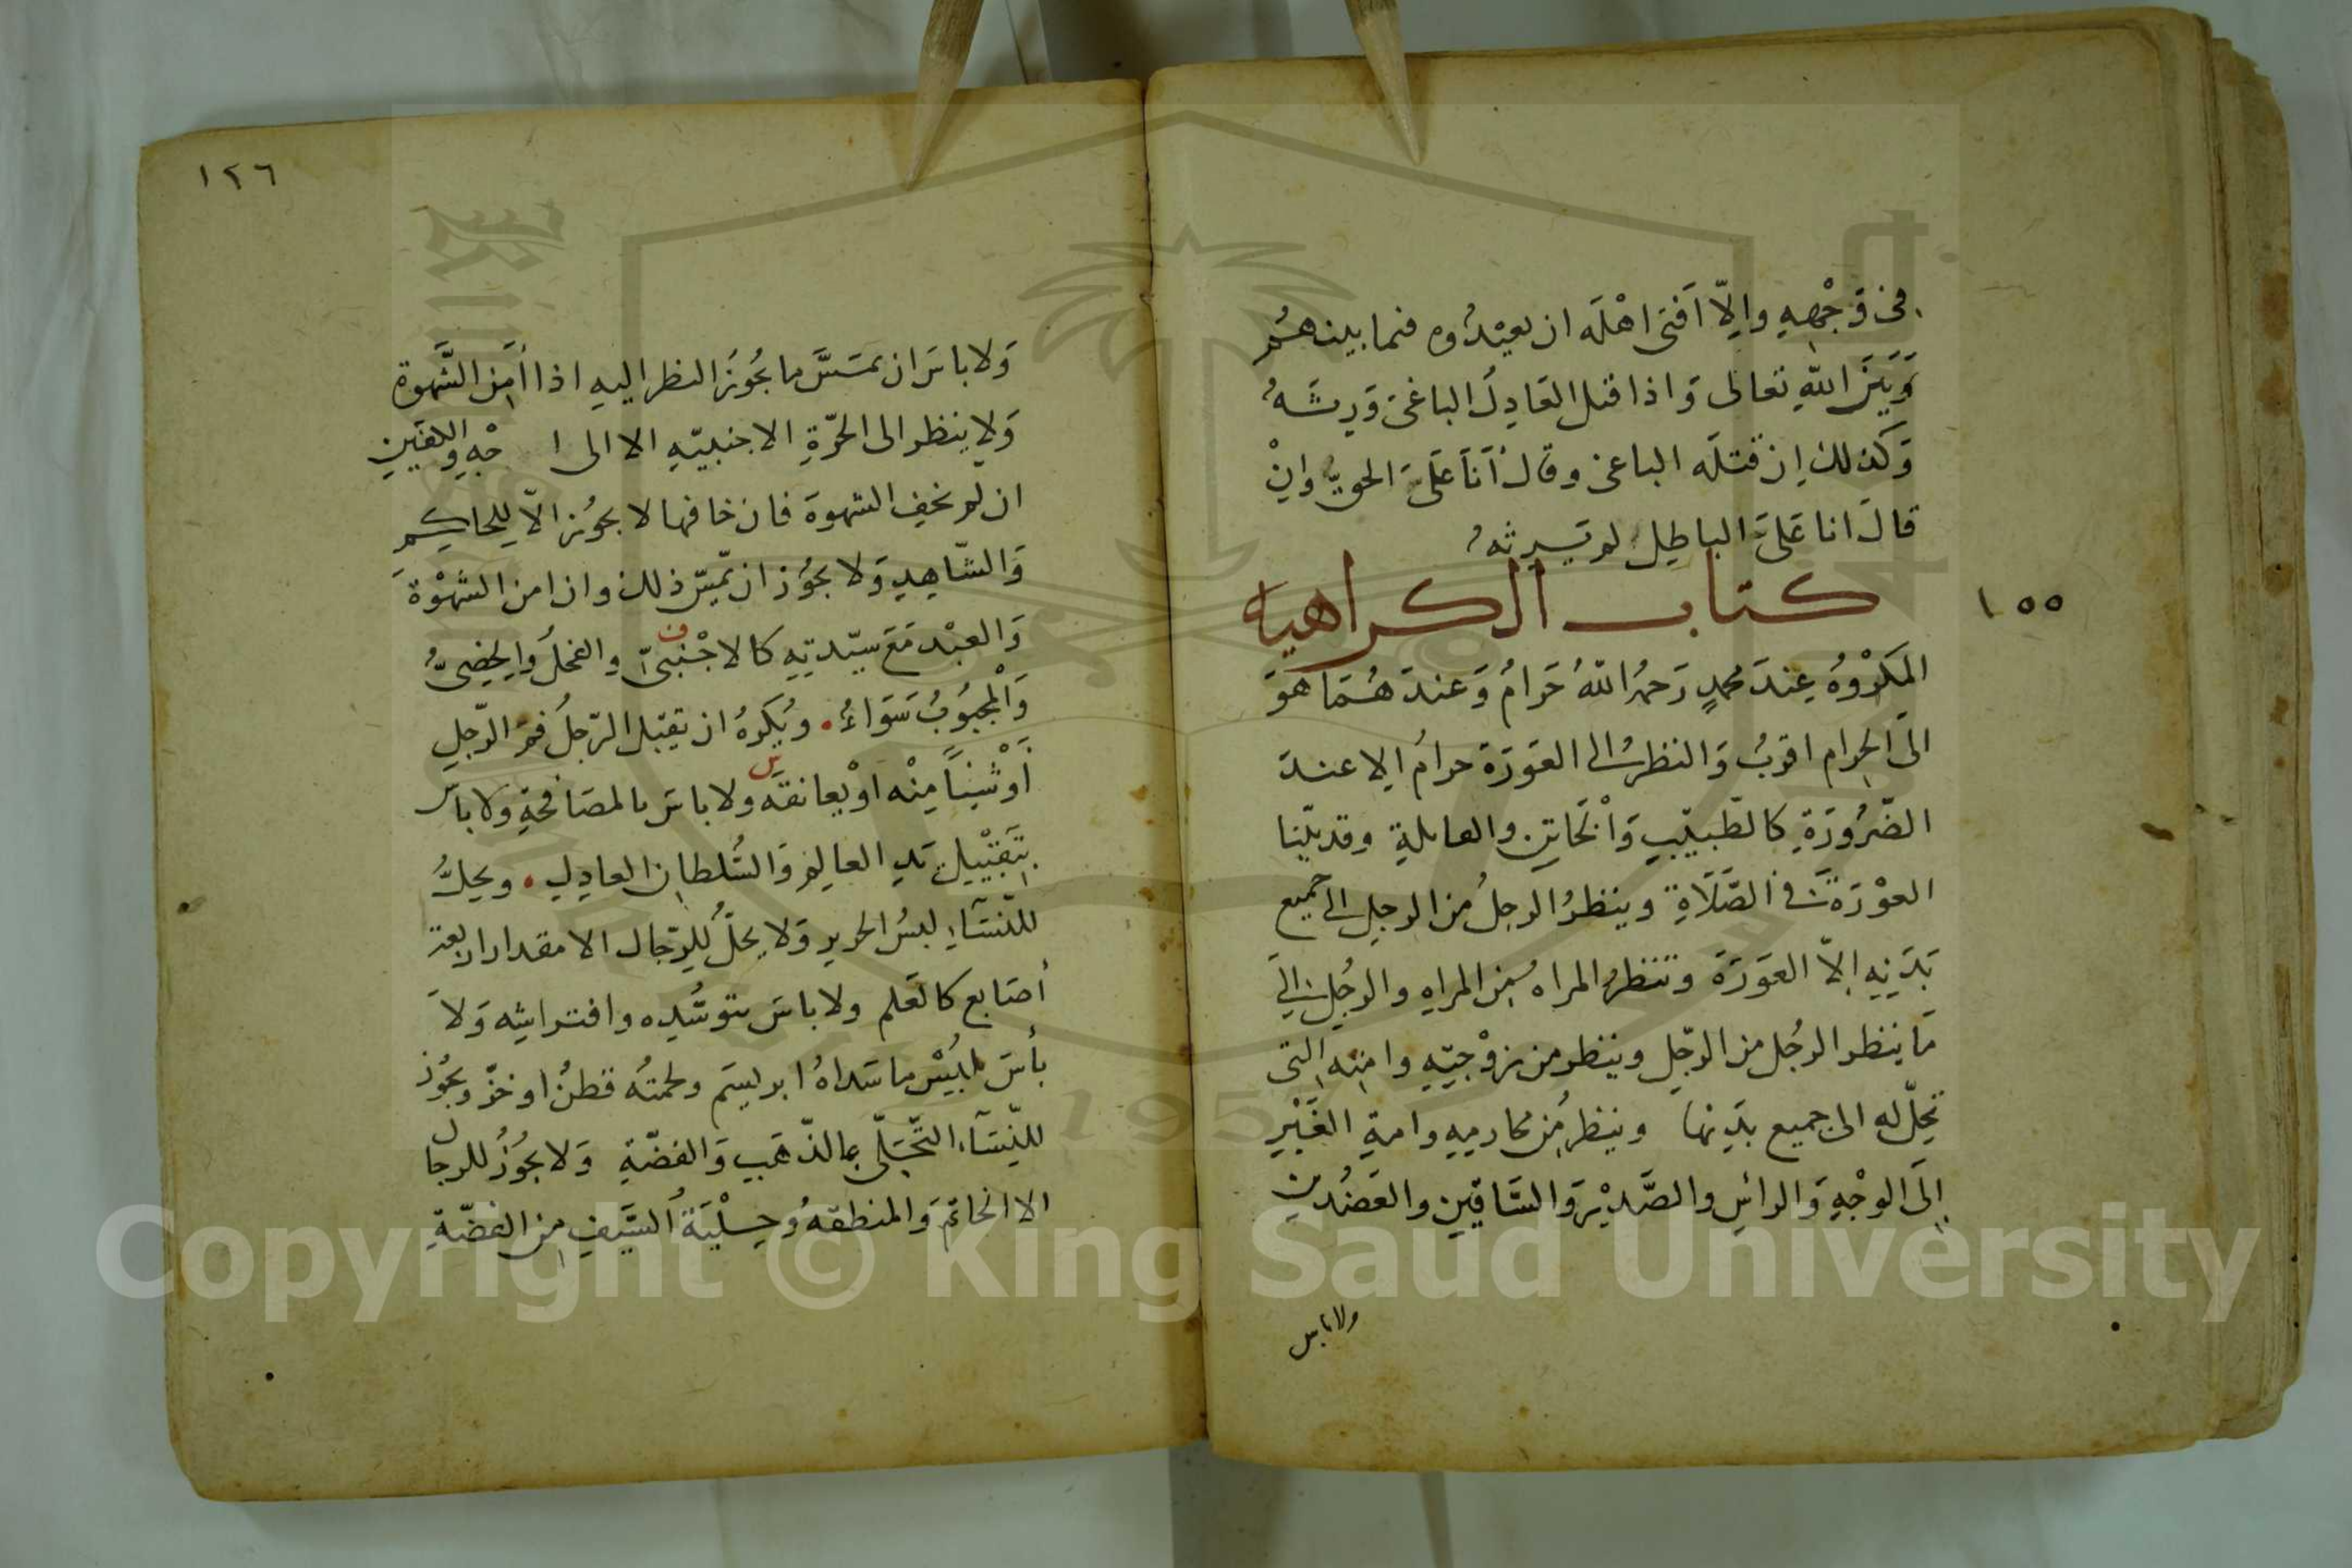 في وَجْهِهِ وإلّا اَفتى اهْلَه ان يعيْدُوه فيما بينهُم
وَبَيْنَ اللّهِ تعالى وَاذا قتل العَادِلُ الباغىَ وَرِثَهُ
وَكذلك اِن قتلَه الباغى وقالَ اَنَا عَلَى الحقِّ واِنْ
قالَ انا عَلَى الباطِلِ لم يَرِثهُ
كتاب الكراهيه
١٥٥
المَكرُوْهُ عِندَ محمدٍ رَحمهُ اللّهُ حَرامٌ وَعندَ هُمَا هوَ
الىَ الحرام اقربُ وَالنظرُ الى العَورَة حرامٌ الا عندَ
الضّرُورَةِ كالطّبيْبِ وَالْخَاتِن والقابلةِ وقد بيّنا
العوْرَةَ في الصَّلَاةِ وينظرُ الرجلُ من الرجلِ الى جميع
بَدَنِهِ اِلاّ العَورَةَ وتنظرُ المراه مِن المراهِ والرجُلِ الى
مَا ينظر الرجُل من الرّجلِ وينظر من زوْجتِهِ وامتِه التى
تحِلّ له الى جميع بدَنِها وينظر مِن محارمِهِ وامةِ الغَيْرِ
اِلَى الوجْهِ وَالراسِ والصَّدْرِ وَالسَّاقَينِ والعَضُدَينِ
ولا باس
١٢٦
وَلا باسَ ان يمسَّ ما يجُوزُ النظر اليهِ اذا اَمِنَ الشَّهوة
وَلا ينظر الى الحرّةِ الاجنبيّهِ الا الى ا جْهِ والكفينِ
ان لم يخفِ الشهوةَ فان خافها لا يجوُز الاّ للحاكِمِ
وَالشّاهِدِ وَلا يجوُز ان يمسّ ذلك وان امن الشهْوَةَ
وَالعبْد مَعَ سيّدتِهِ كالاجْنبىّ والفحلُ والخصِىُّ
وَالْمجبُوبُ سَوَاءٌ . ويُكرهُ ان يقبّل الرّجلُ فمَ الرّجلِ
اَوْ شَيئاً مِنْه اوْ يعانقه ولا باسَ بالمصَافحةِ ولا باس
بِتَقبْيلِ يَدِ العالِمِ وَالسُّلطانِ العادِلِ . ويحلُّ
للنّسَآءِ لبسُ الحرير وَلا يحلُّ للِرّجال الا مقدار اربعة
أصَابع كالعَلم ولا باسَ بتوسُّدِه وافتراشِه وَلاَ
بأسَ بلُبْس ما سَداهُ ابريسَم ولحمتُه قطنٌ او خزّ ويجوُز
للنّسَآء التّحَلّى بالذّهَبِ وَالفضّةِ وَلا يجُوزُ للرجال
الا الخاتم وَالمنطقهُ وحِلْيَةُ السَّيفِ مِن الفضّةِ
Copyright © King Saud University
195